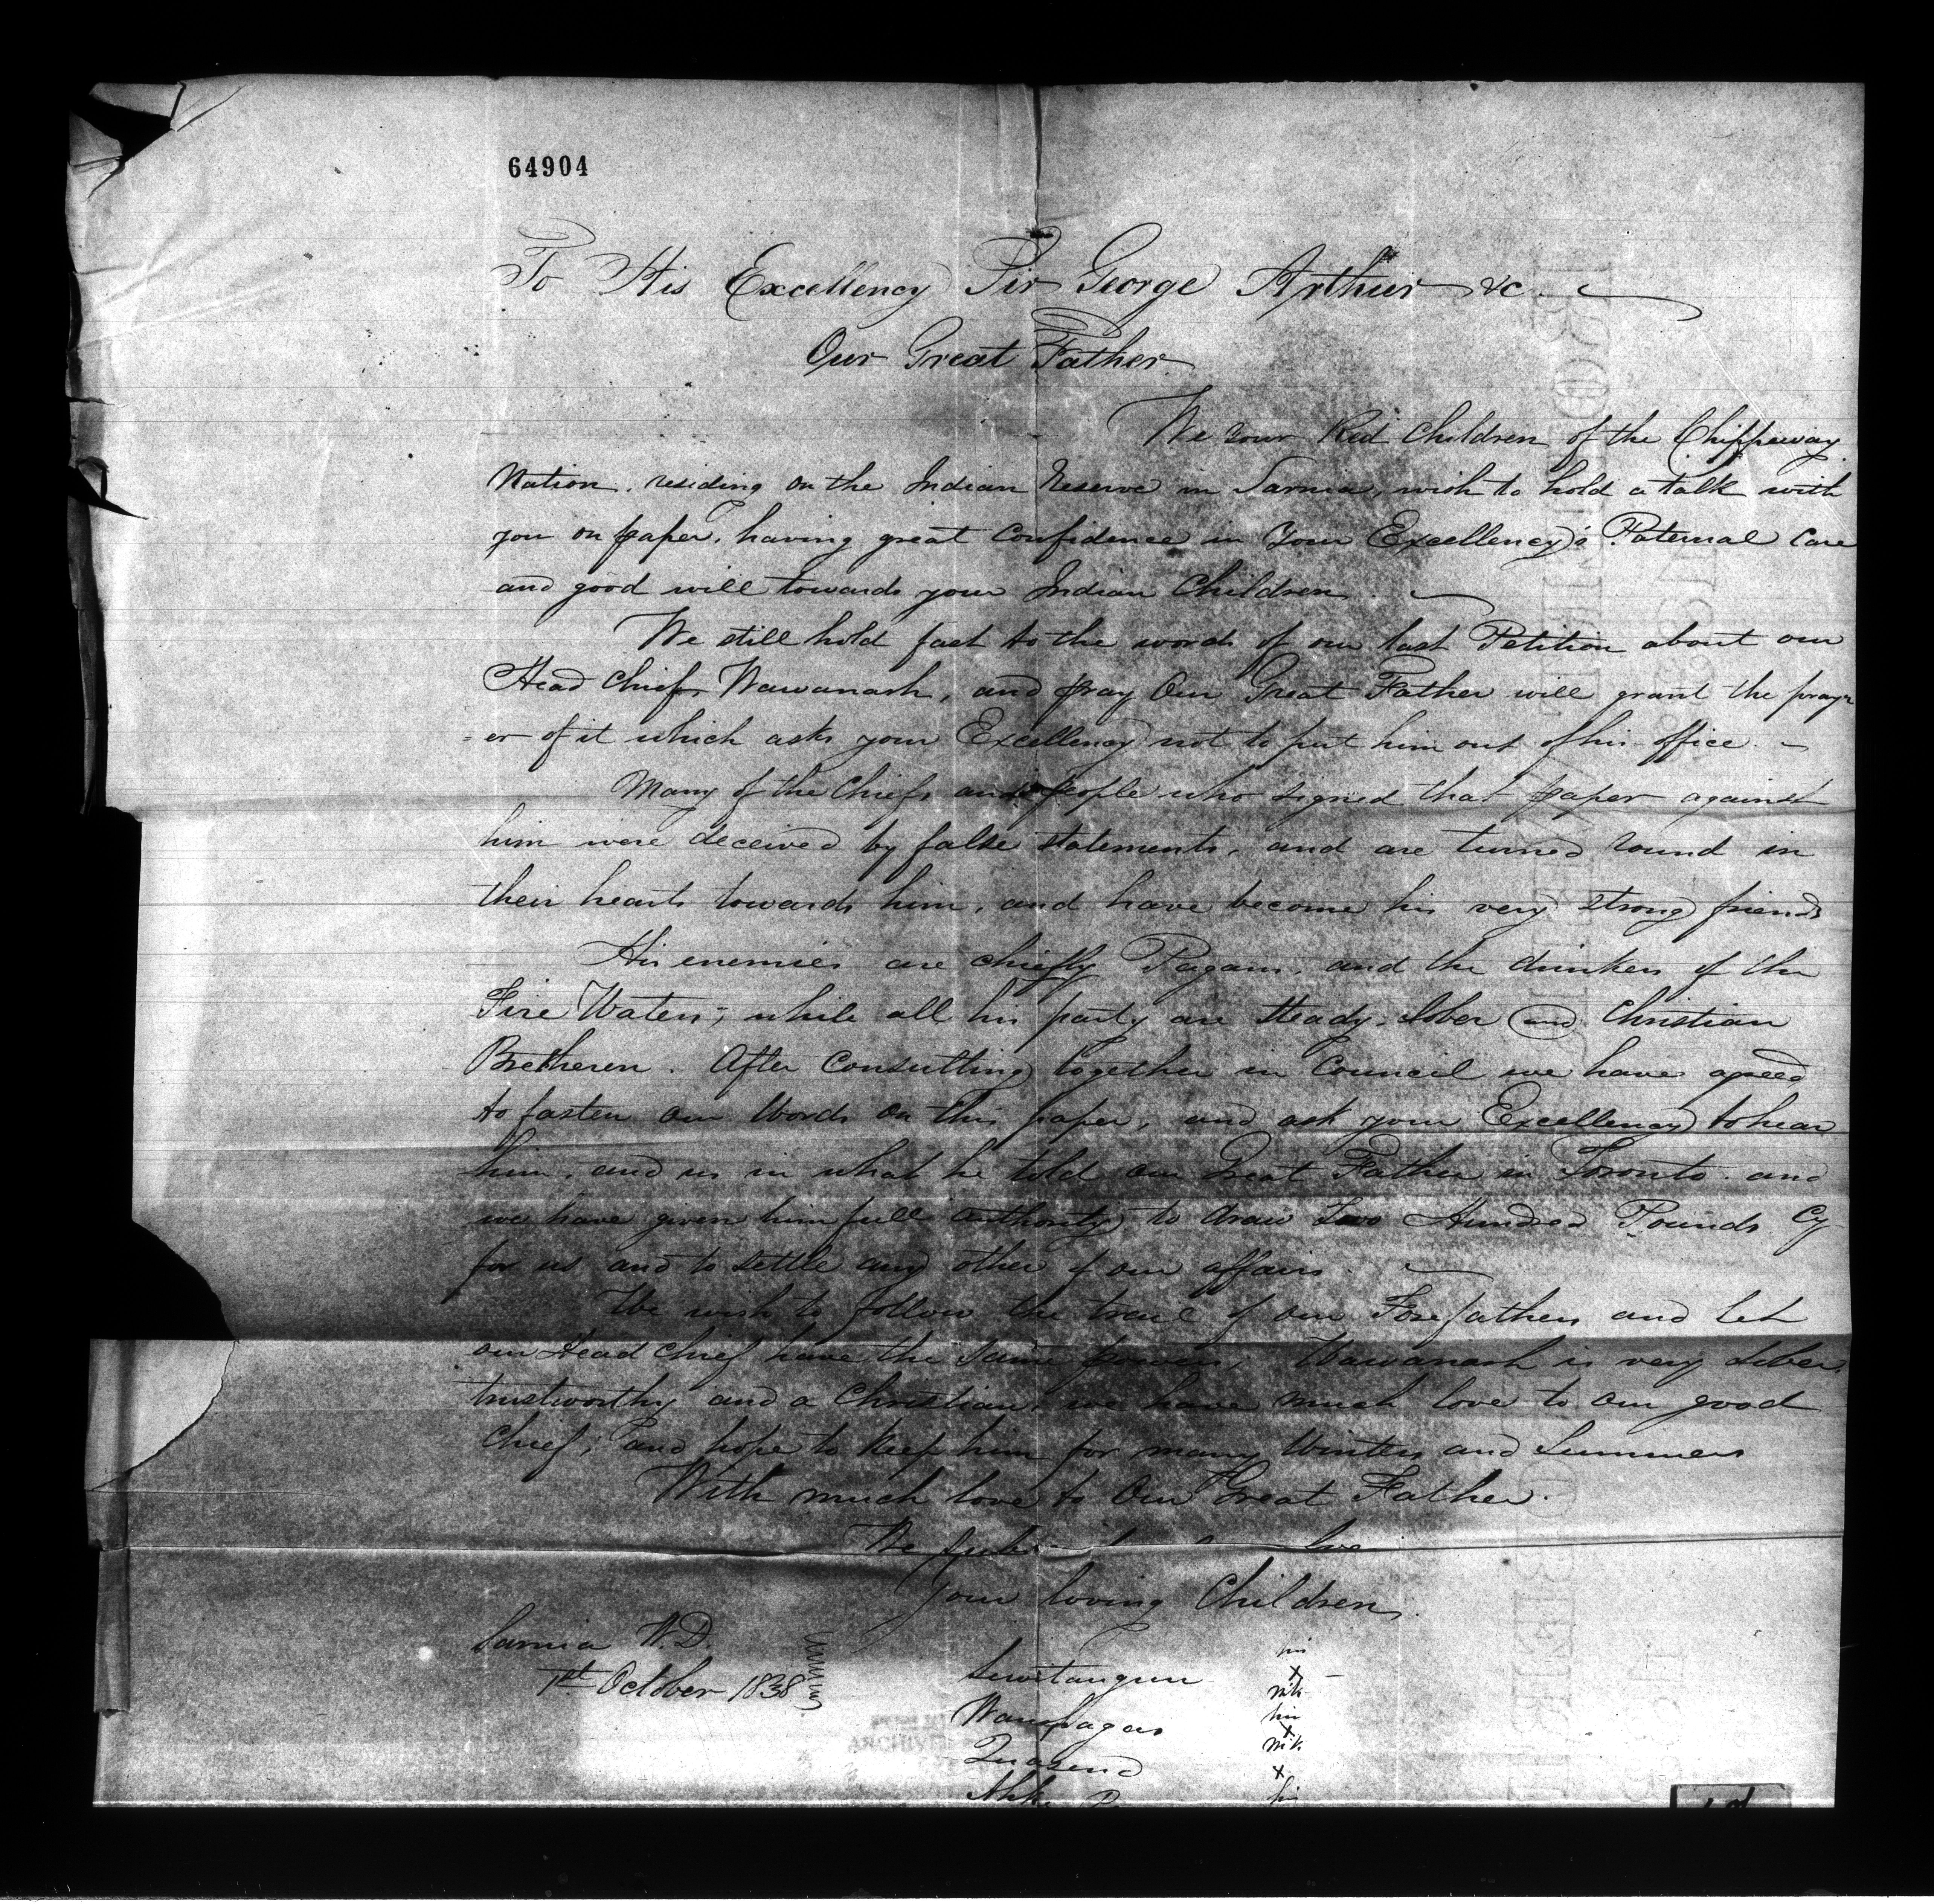 64904
To His Excellency Sir George Arthur &c
Our Great Father
We Your Red Children of the Chippeway
Nation, residing on the Indian Reserve in Sarnia, wish to hold a talk with
you on paper, having great confidence in Your Excellency's Paternal Care
and good will towards your Indian Children.
We still hold fast to the words of our last Petition about our
Head Chief, Wawanash, and pray Our Great Father will grant the pray
=er of it which asks your Excellency not to put him out of his office. -
Many of the Chiefs and people who signed that paper against
him were deceived by false statements, and are turned round in
their hearts towards him, and have become his very strong friends
His enemies are chiefly Pagans, and the drinkers of the
Fire Waters; while all his party are steady, sober and Christian
Bretheren. After consulting together in Council we have agreed
to fasten our Words on this paper, and ask your Excellency to hear
him, and us in what he told our Great Father in Toronto. and
we have given him full authority to draw Two Hundred Pounds Cy
for us and to settle any other of our affairs.
We wish to follow the trail of our Forefathers and let
our Head Chief have the same powers, Wawanash is very sober,
trustworthy and a Christian, we have much love to our good
Chief; and hope to keep him for many Winters and Summers
With much love to Our Great Father.
We
your loving Children.
Sarnia W.D.
1st October 1838
his
x
mk
his
x
mk
x
his